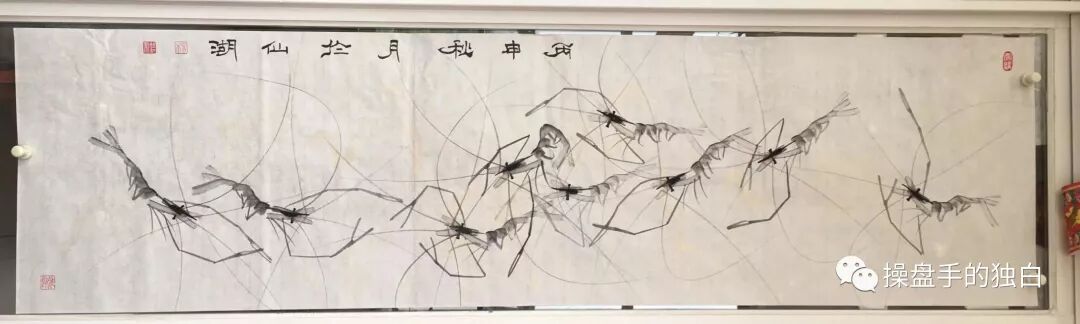 丙申秋月於仙湖
操盘手的独白